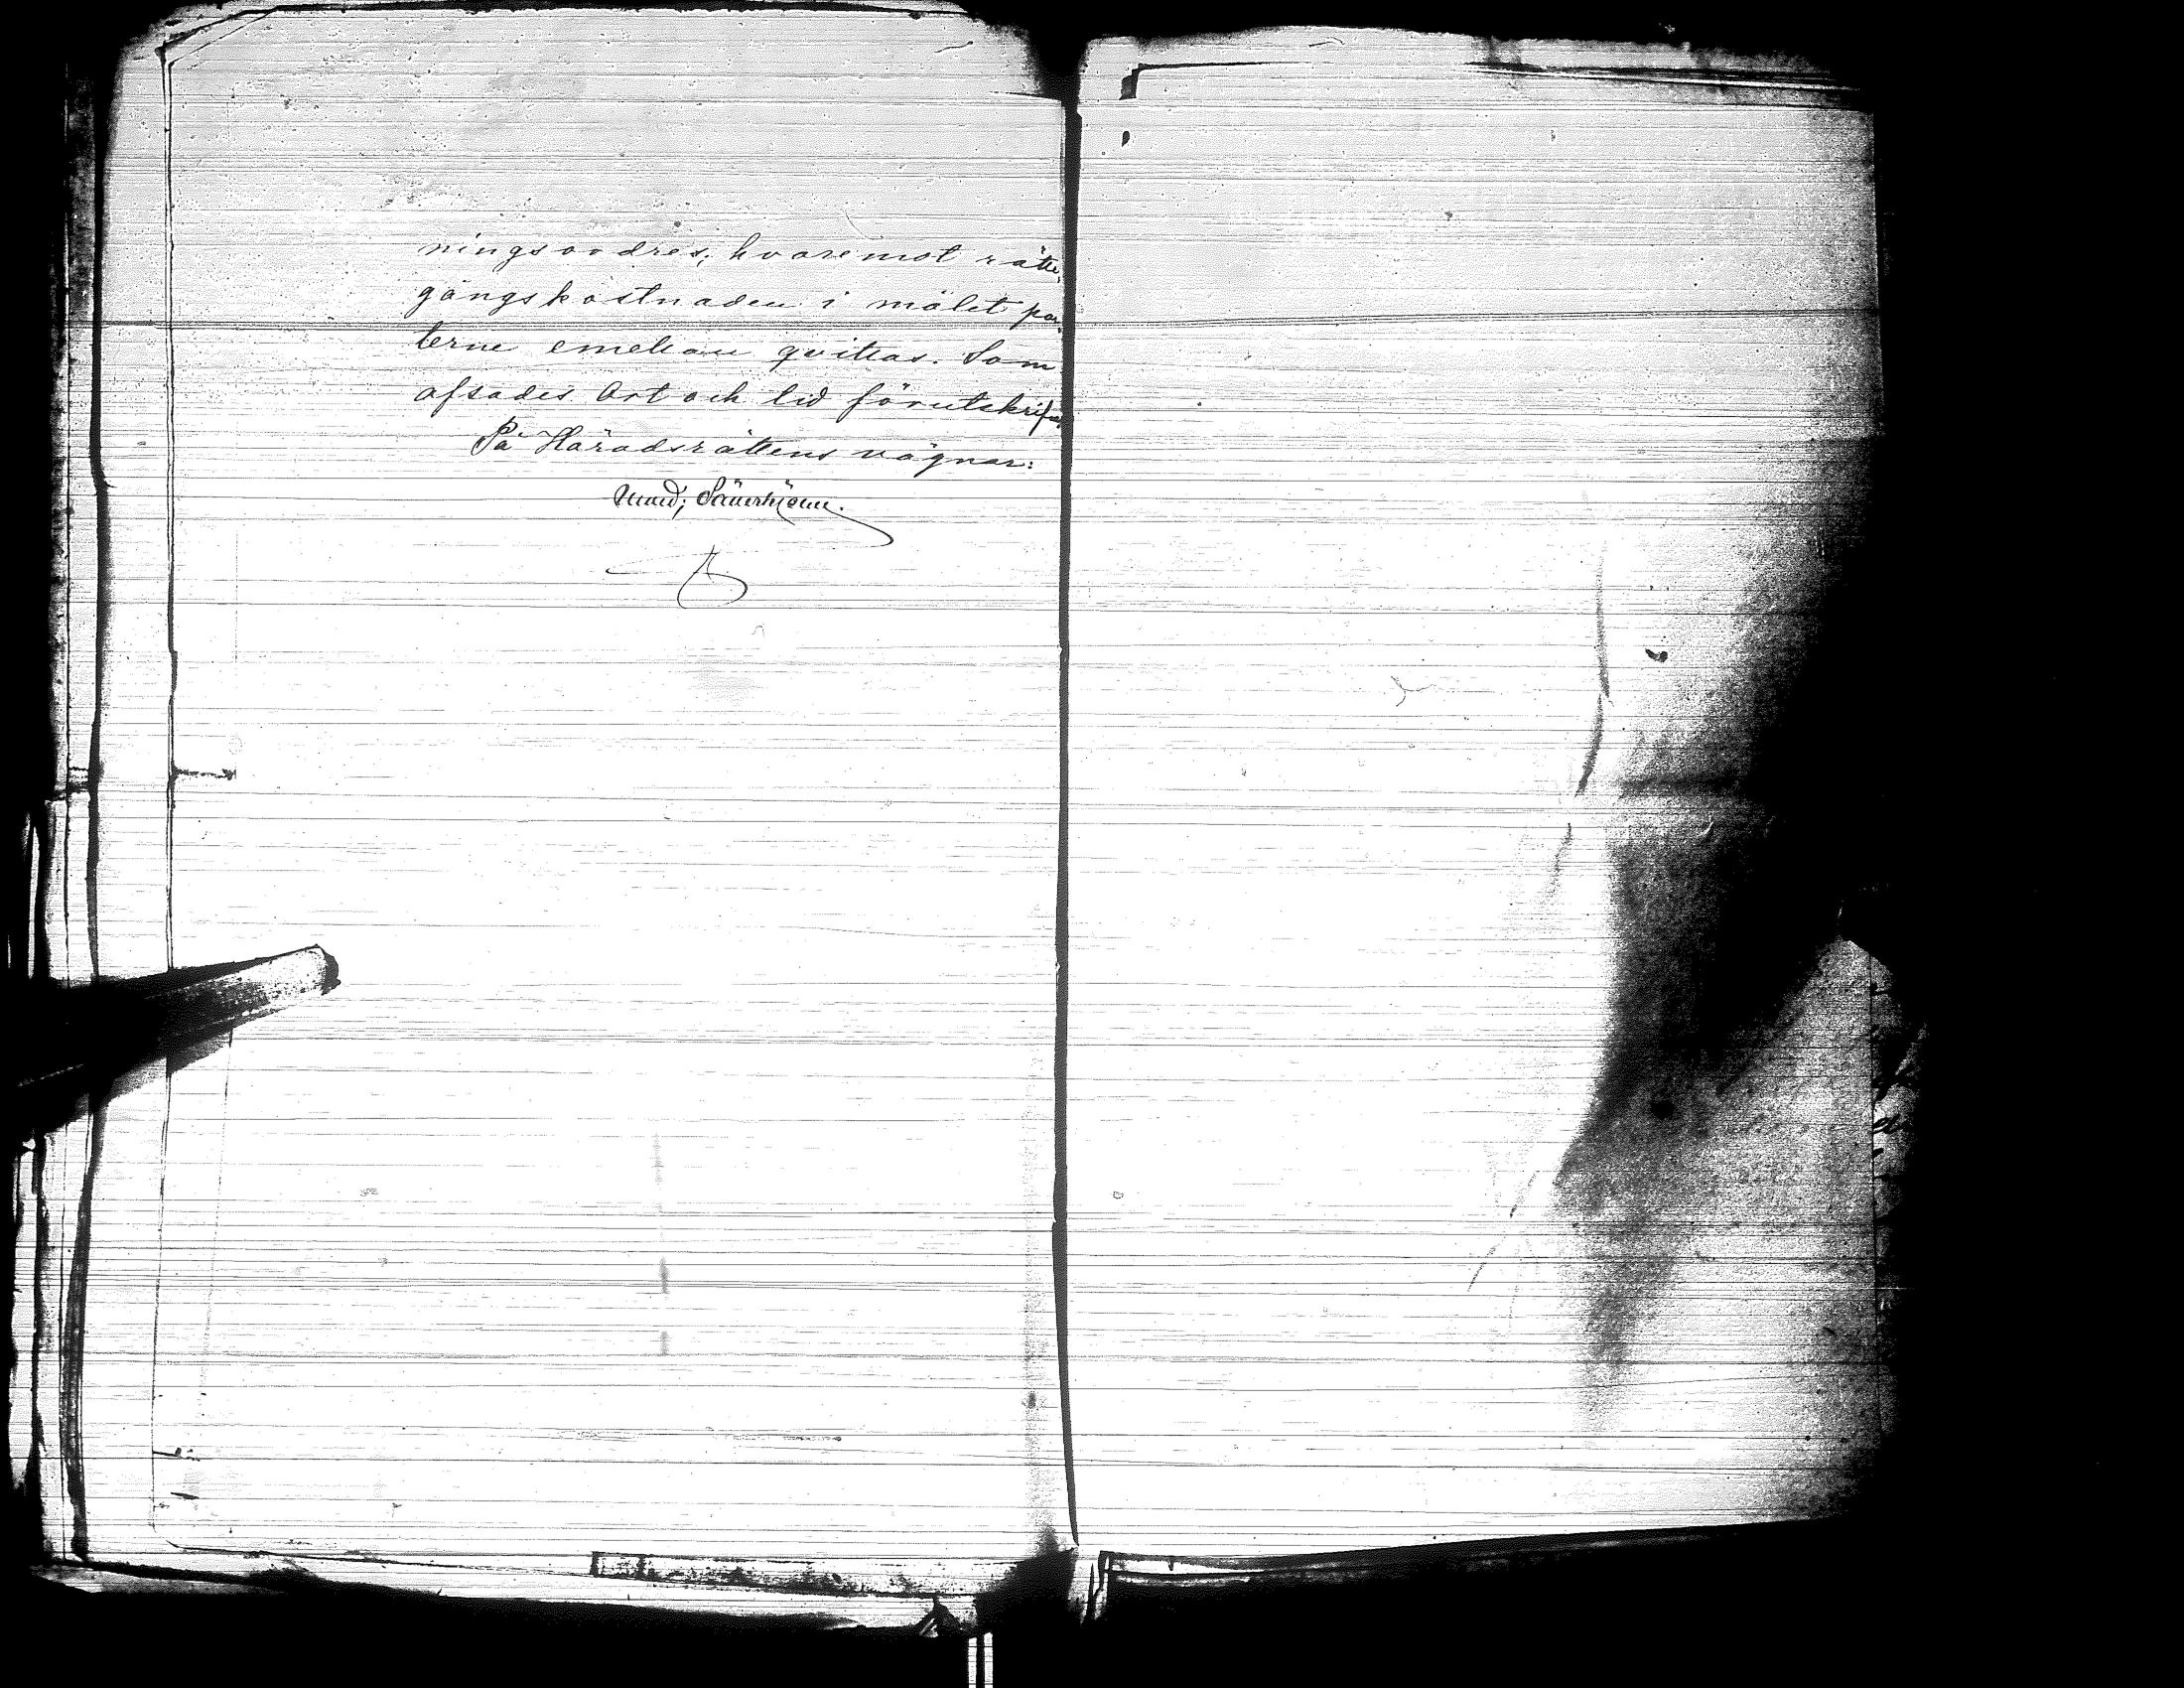 ningsordres; hvaremot rätte-
gångskostnaden i målet par-
terne emellan qvittas. Som
afsades Ort och tid förutskrifne
På Häradsrättens vägnar: